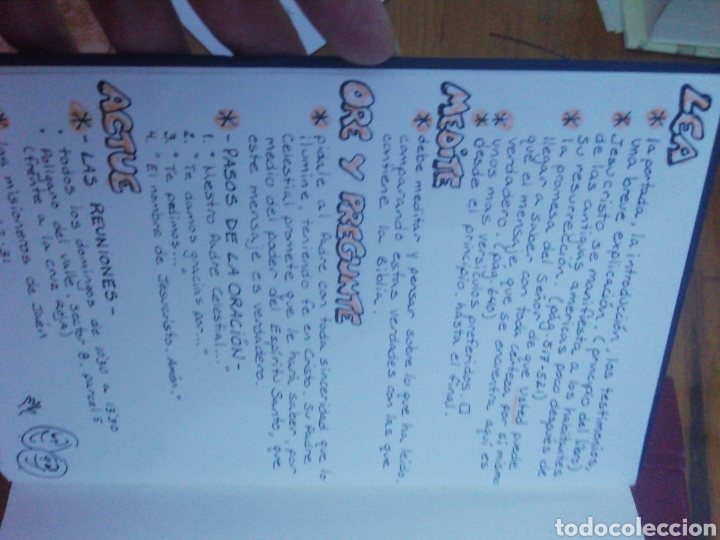 LEA
* la portada, la introducción, los testimonios,
una breve explicación. (principio del libro)
* Jesucristo se manifiesta a los habitantes
de las antiguas americas poco después de
su resurrección. (pág. 517-521)
* la promesa del Señor de que usted puede
llegar a saber con toda certeza por sí mismo
que el mensaje que se encuentra aquí es
verdadero. (pág. 646)
* unos mas versículos preferidos.
* desde el principio, hasta el final.
MEDITE
* debe meditar y pensar sobre lo que ha leído,
comparando estas verdades con las que
contiene la Biblia.
ORE Y PREGUNTE
* pídale al Padre con toda sinceridad que lo
ilumine, teniendo fe en Cristo. Su Padre
Celestial promete que le hará saber, por
medio del poder del Espíritu Santo, que
este mensaje es verdadero.
* - PASOS DE LA ORACIÓN -
1. "Nuestro Padre Celestial..."
2. "Te damos gracias por..."
3. "Te pedimos..."
4. "El nombre de Jesucristo. Amén."
ACTUE
* - LAS REUNIONES -
• todos los domingos de a 13:30
• Polígano del valle, sector 8, parcel 5
(frente a la cruz roja)
* Los misioneros de Jaén
todocoleccion